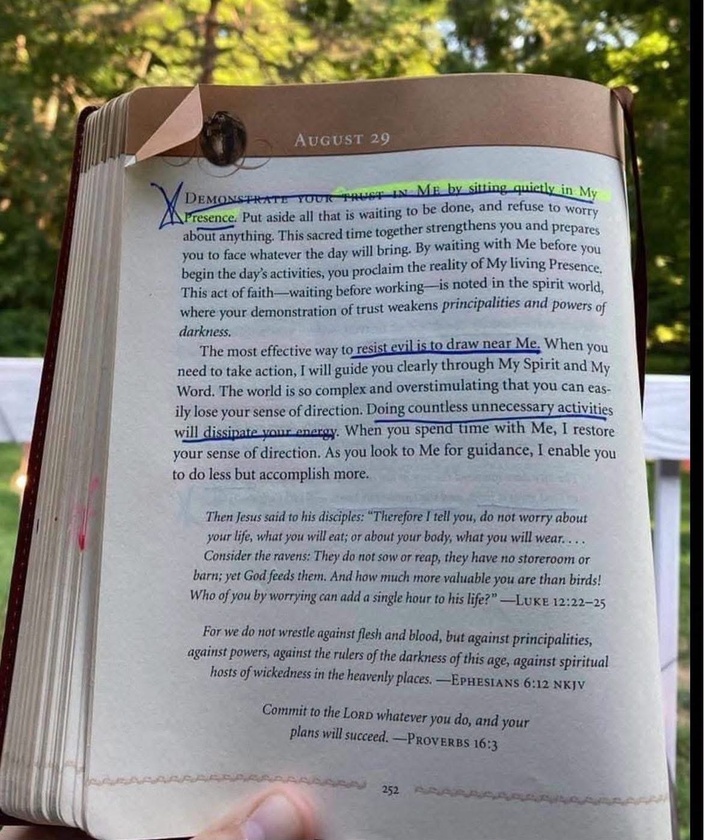 AUGUST 29
DEMONSTRATE YOUR TRUST IN ME by sitting quietly in My
Presence. Put aside all that is waiting to be done, and refuse to worry
about anything. This sacred time together strengthens you and prepares
you to face whatever the day will bring. By waiting with Me before you
begin the day's activities, you proclaim the reality of My living Presence.
This act of faith—waiting before working—is noted in the spirit world,
where your demonstration of trust weakens principalities and powers of
darkness.
The most effective way to resist evil is to draw near Me. When you
need to take action, I will guide you clearly through My Spirit and My
Word. The world is so complex and overstimulating that you can eas-
ily lose your sense of direction. Doing countless unnecessary activities
will dissipate your energy. When you spend time with Me, I restore
your sense of direction. As you look to Me for guidance, I enable you
to do less but accomplish more.
Then Jesus said to his disciples: “Therefore I tell you, do not worry about
your life, what you will eat; or about your body, what you will wear. . . .
Consider the ravens: They do not sow or reap, they have no storeroom or
barn; yet God feeds them. And how much more valuable you are than birds!
Who of you by worrying can add a single hour to his life?” —LUKE 12:22–25
For we do not wrestle against flesh and blood, but against principalities,
against powers, against the rulers of the darkness of this age, against spiritual
hosts of wickedness in the heavenly places. —EPHESIANS 6:12 NKJV
Commit to the LORD whatever you do, and your
plans will succeed. —PROVERBS 16:3
252